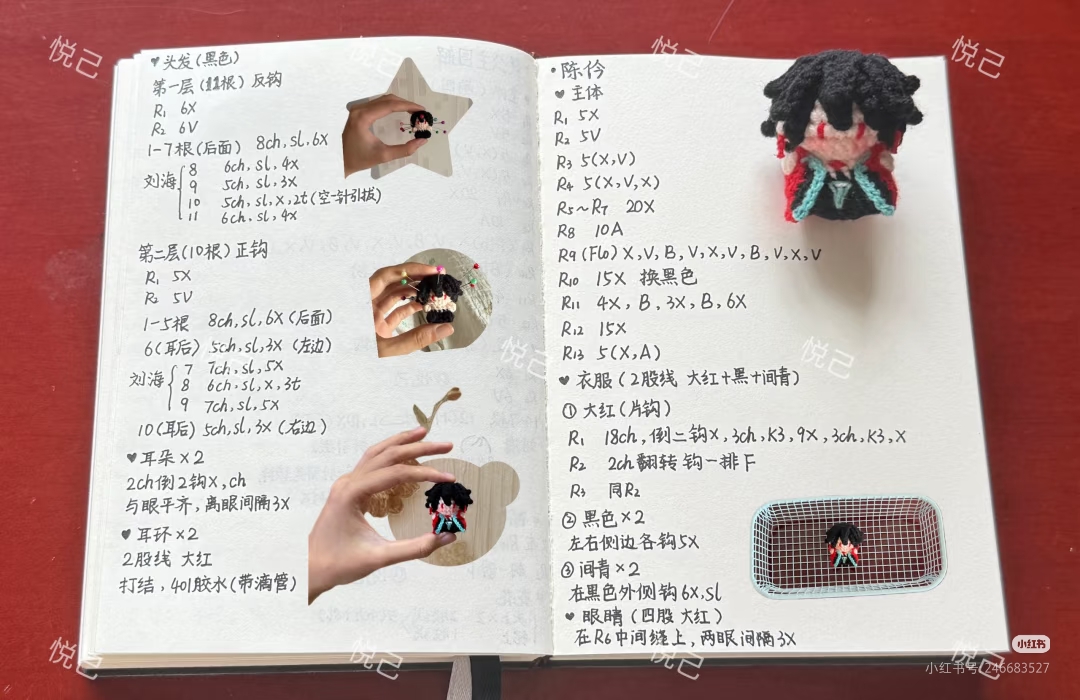 ♥头发(黑色)
第一层(11根) 反钩
R₁ 6X
R₂ 6V
1-7根(后面) 8ch,sl,6X
刘海
8 6ch,sl,4X
9 5ch,sl,3X
10 5ch,sl,X,2t(空一针引拔)
11 6ch,sl,4X
第二层(10根)正钩
R₁ 5X
R₂ 5V
1-5根 8ch,sl,6X(后面)
6(耳后) 5ch,sl,3X (左边)
刘海
7 7ch,sl,5X
8 6ch,sl,X,3t
9 7ch,sl,5X
10(耳后) 5ch,sl,3X(右边)
♥耳朵×2
2ch倒2钩X,ch
与眼平齐,离眼间隔3X
♥耳环×2
2股线 大红
打结,401胶水(带滴管)
·陈伶
♥主体
R₁ 5X
R₂ 5V
R₃ 5(X,V)
R₄ 5(X,V,X)
R₅~R₇ 20X
R₈ 10A
R₉(Flo)X,V,B,V,X,V,B,V,X,V
R₁₀ 15X 换黑色
R₁₁ 4X,B,3X,B,6X
R₁₂ 15X
R₁₃ 5(X,A)
♥衣服(2股线 大红+黑+间青)
①大红(片钩)
R₁ 18ch,倒二钩X,3ch,K3,9X,3ch,K3,X
R₂ 2ch翻转钩一排F
R₃ 同R₂
②黑色×2
左右侧边各钩5X
③间青×2
在黑色外侧钩6X,sl
♥眼睛(四股 大红)
在R₆中间缝上,两眼间隔3X
悦己
悦己
悦己
悦己
悦己
悦己
悦己
悦己
小红书
小红书号:246683527